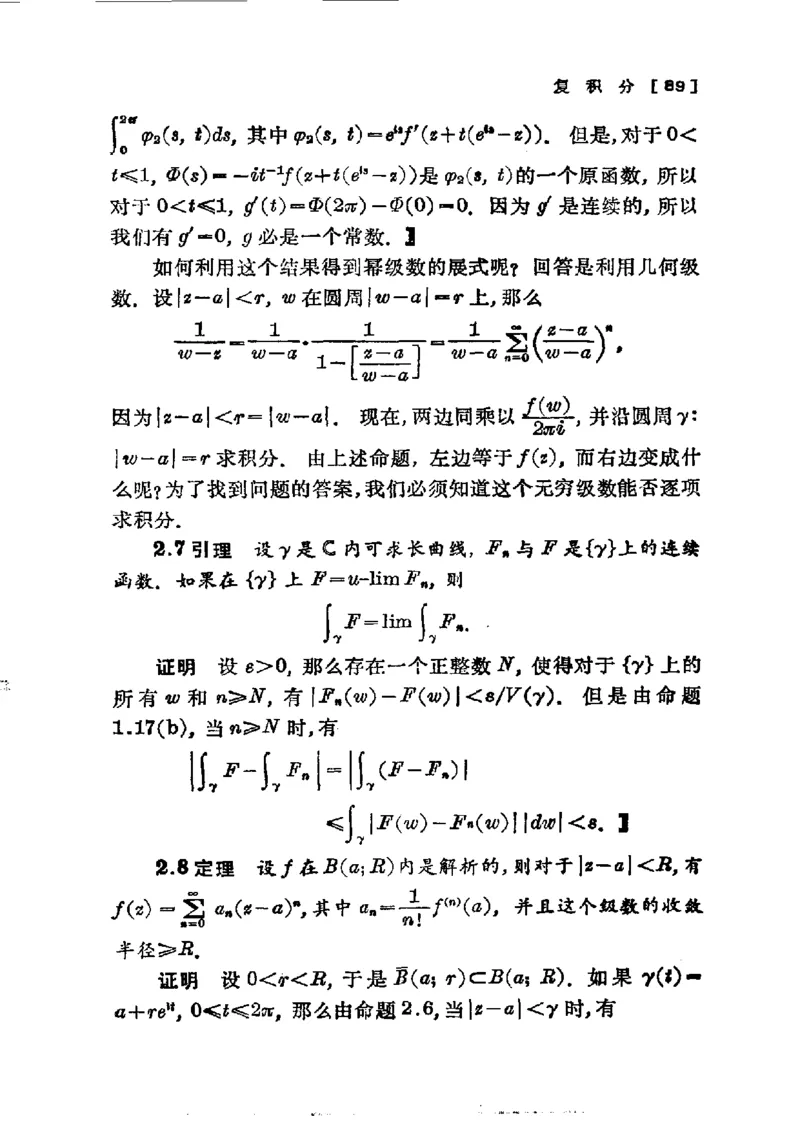 复 积 分 [89]
∫₀^{2π} φ₂(s, t)ds, 其中 φ₂(s, t)=e^{is}f′(z+t(e^{is}−z)). 但是,对于 0<
t⩽1, Φ(s)=−it⁻¹f(z+t(e^{is}−z))是 φ₂(s, t)的一个原函数, 所以
对于 0<t⩽1, g′(t)=Φ(2π)−Φ(0)=0. 因为 g′ 是连续的, 所以
我们有 g′=0, g 必是一个常数. 】
如何利用这个结果得到幂级数的展式呢? 回答是利用几何级
数. 设|z−a|<r, w 在圆周|w−a|=r 上, 那么
\frac{1}{w−z}=\frac{1}{w−a}·\frac{1}{1−[\frac{z−a}{w−a}]}=\frac{1}{w−a}∑_{n=0}^{∞}(\frac{z−a}{w−a})^n,
因为|z−a|<r=|w−a|. 现在,两边同乘以 \frac{f(w)}{2πi}, 并沿圆周 γ:
|w−a|=r 求积分. 由上述命题, 左边等于 f(z), 而右边变成什
么呢?为了找到问题的答案,我们必须知道这个无穷级数能否逐项
求积分.
2.7 引理 设 γ 是 ℂ 内可求长曲线, Fₙ 与 F 是{γ}上的连续
函数. 如果在 {γ} 上 F=u-lim Fₙ, 则
∫_γ F=lim ∫_γ Fₙ.
证明 设 ε>0, 那么存在一个正整数 N, 使得对于 {γ} 上的
所有 w 和 n⩾N, 有 |Fₙ(w)−F(w)|<ε/V(γ). 但是由命题
1.17(b), 当 n⩾N 时,有
|∫_γ F−∫_γ Fₙ|=|∫_γ (F−Fₙ)|
⩽∫_γ |F(w)−Fₙ(w)||dw|<ε. 】
2.8 定理 设 f 在 B(a; R)内是解析的, 则对于|z−a|<R, 有
f(z)=∑_{n=0}^{∞} aₙ(z−a)ⁿ, 其中 aₙ=\frac{1}{n!}f^{(n)}(a), 并且这个级数的收敛
半径⩾R.
证明 设 0<r<R, 于是 B̄(a; r)⊂B(a; R). 如果 γ(t)=
a+re^{it}, 0⩽t⩽2π, 那么由命题 2.6, 当|z−a|<γ 时, 有